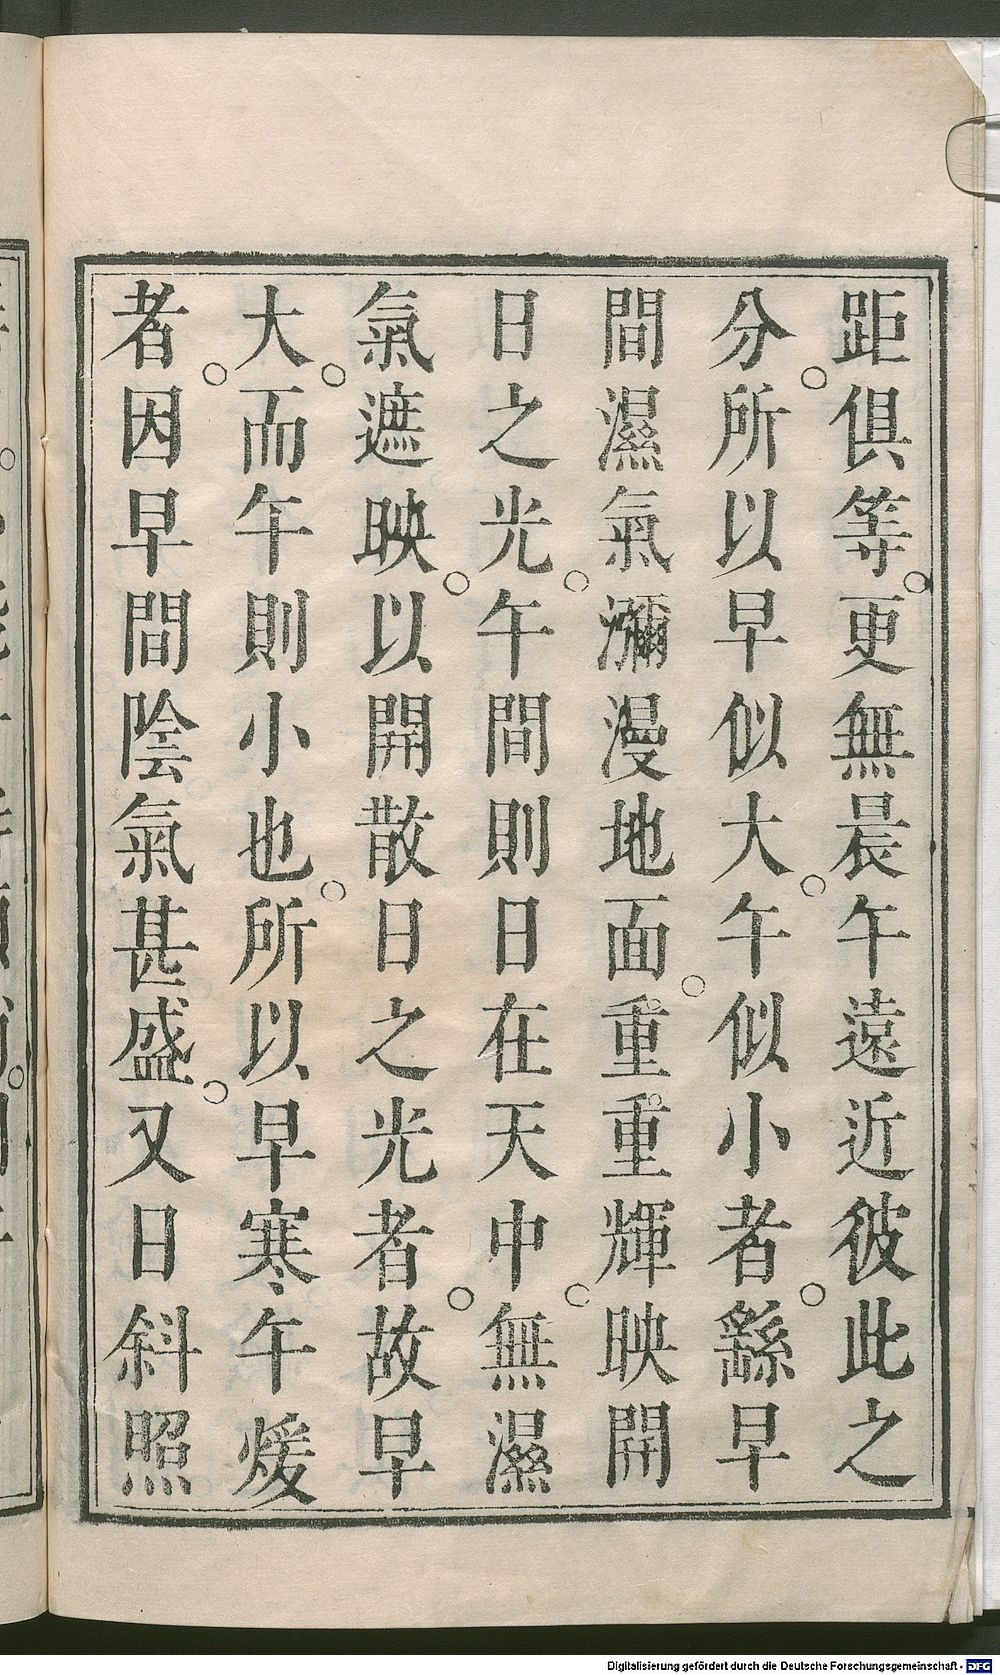 距俱等。更無晨午遠近彼此之
分。所以早似大。午似小者。繇早
間濕氣瀰漫地面。重重輝映開
日之光。午間則日在天中。無濕
氣遮映。以開散日之光者。故早
大。而午則小也。所以早寒、午煖
者。因早間陰氣甚盛。又日斜照
Digitalisierung gefördert durch die Deutsche Forschungsgemeinschaft - DFG